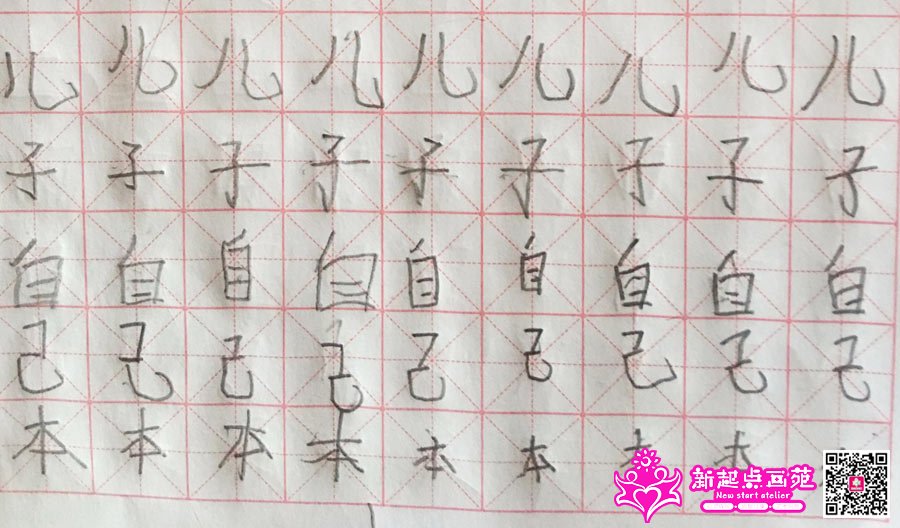 儿儿儿儿儿儿儿儿儿
子子子子子子子子子
自自自自自自自自自
己己己己己己己己己
本本本本本本本本
新起点画苑
New start atelier